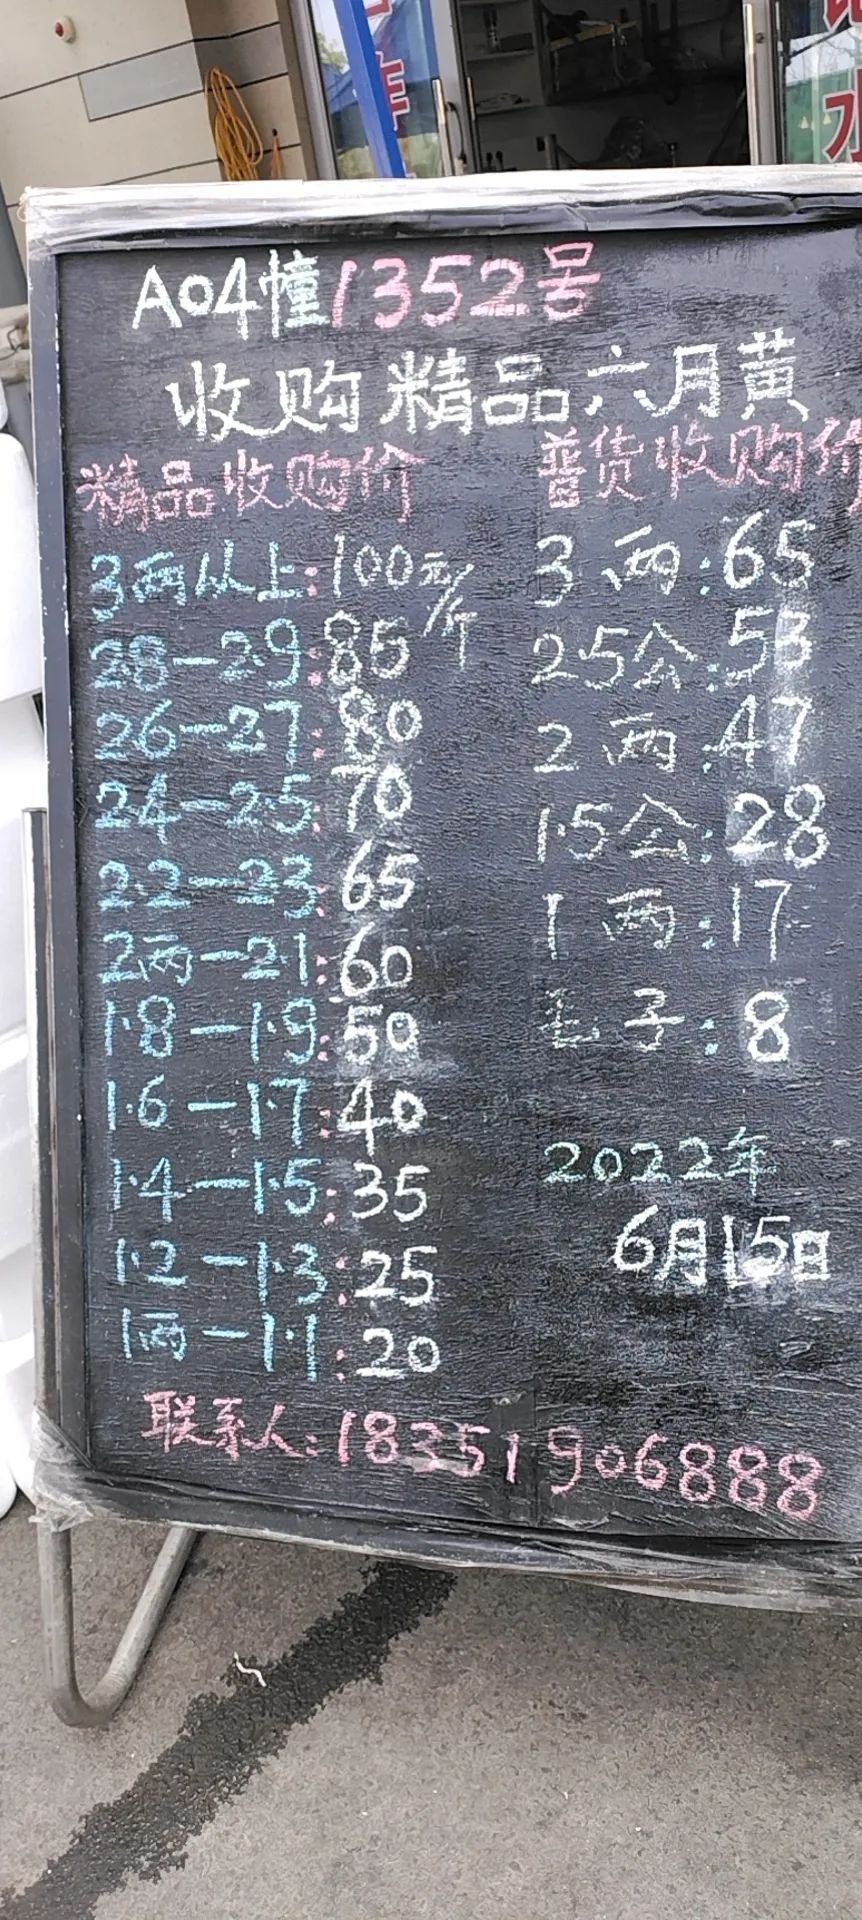 A04幢1352号
收购精品六月黄
精品收购价
3两从上:100元/斤
28-29:85
26-27:80
24-25:70
2.2-23:65
2两-2.1:60
1.8-1.9:50
1.6-1.7:40
1.4-1.5:35
1.2-1.3:25
1两-1.1:20
普货收购价
3两:65
25公:53
2两:47
1.5公:28
1两:17
毛子:8
2022年
6月15日
联系人:18351906888
水